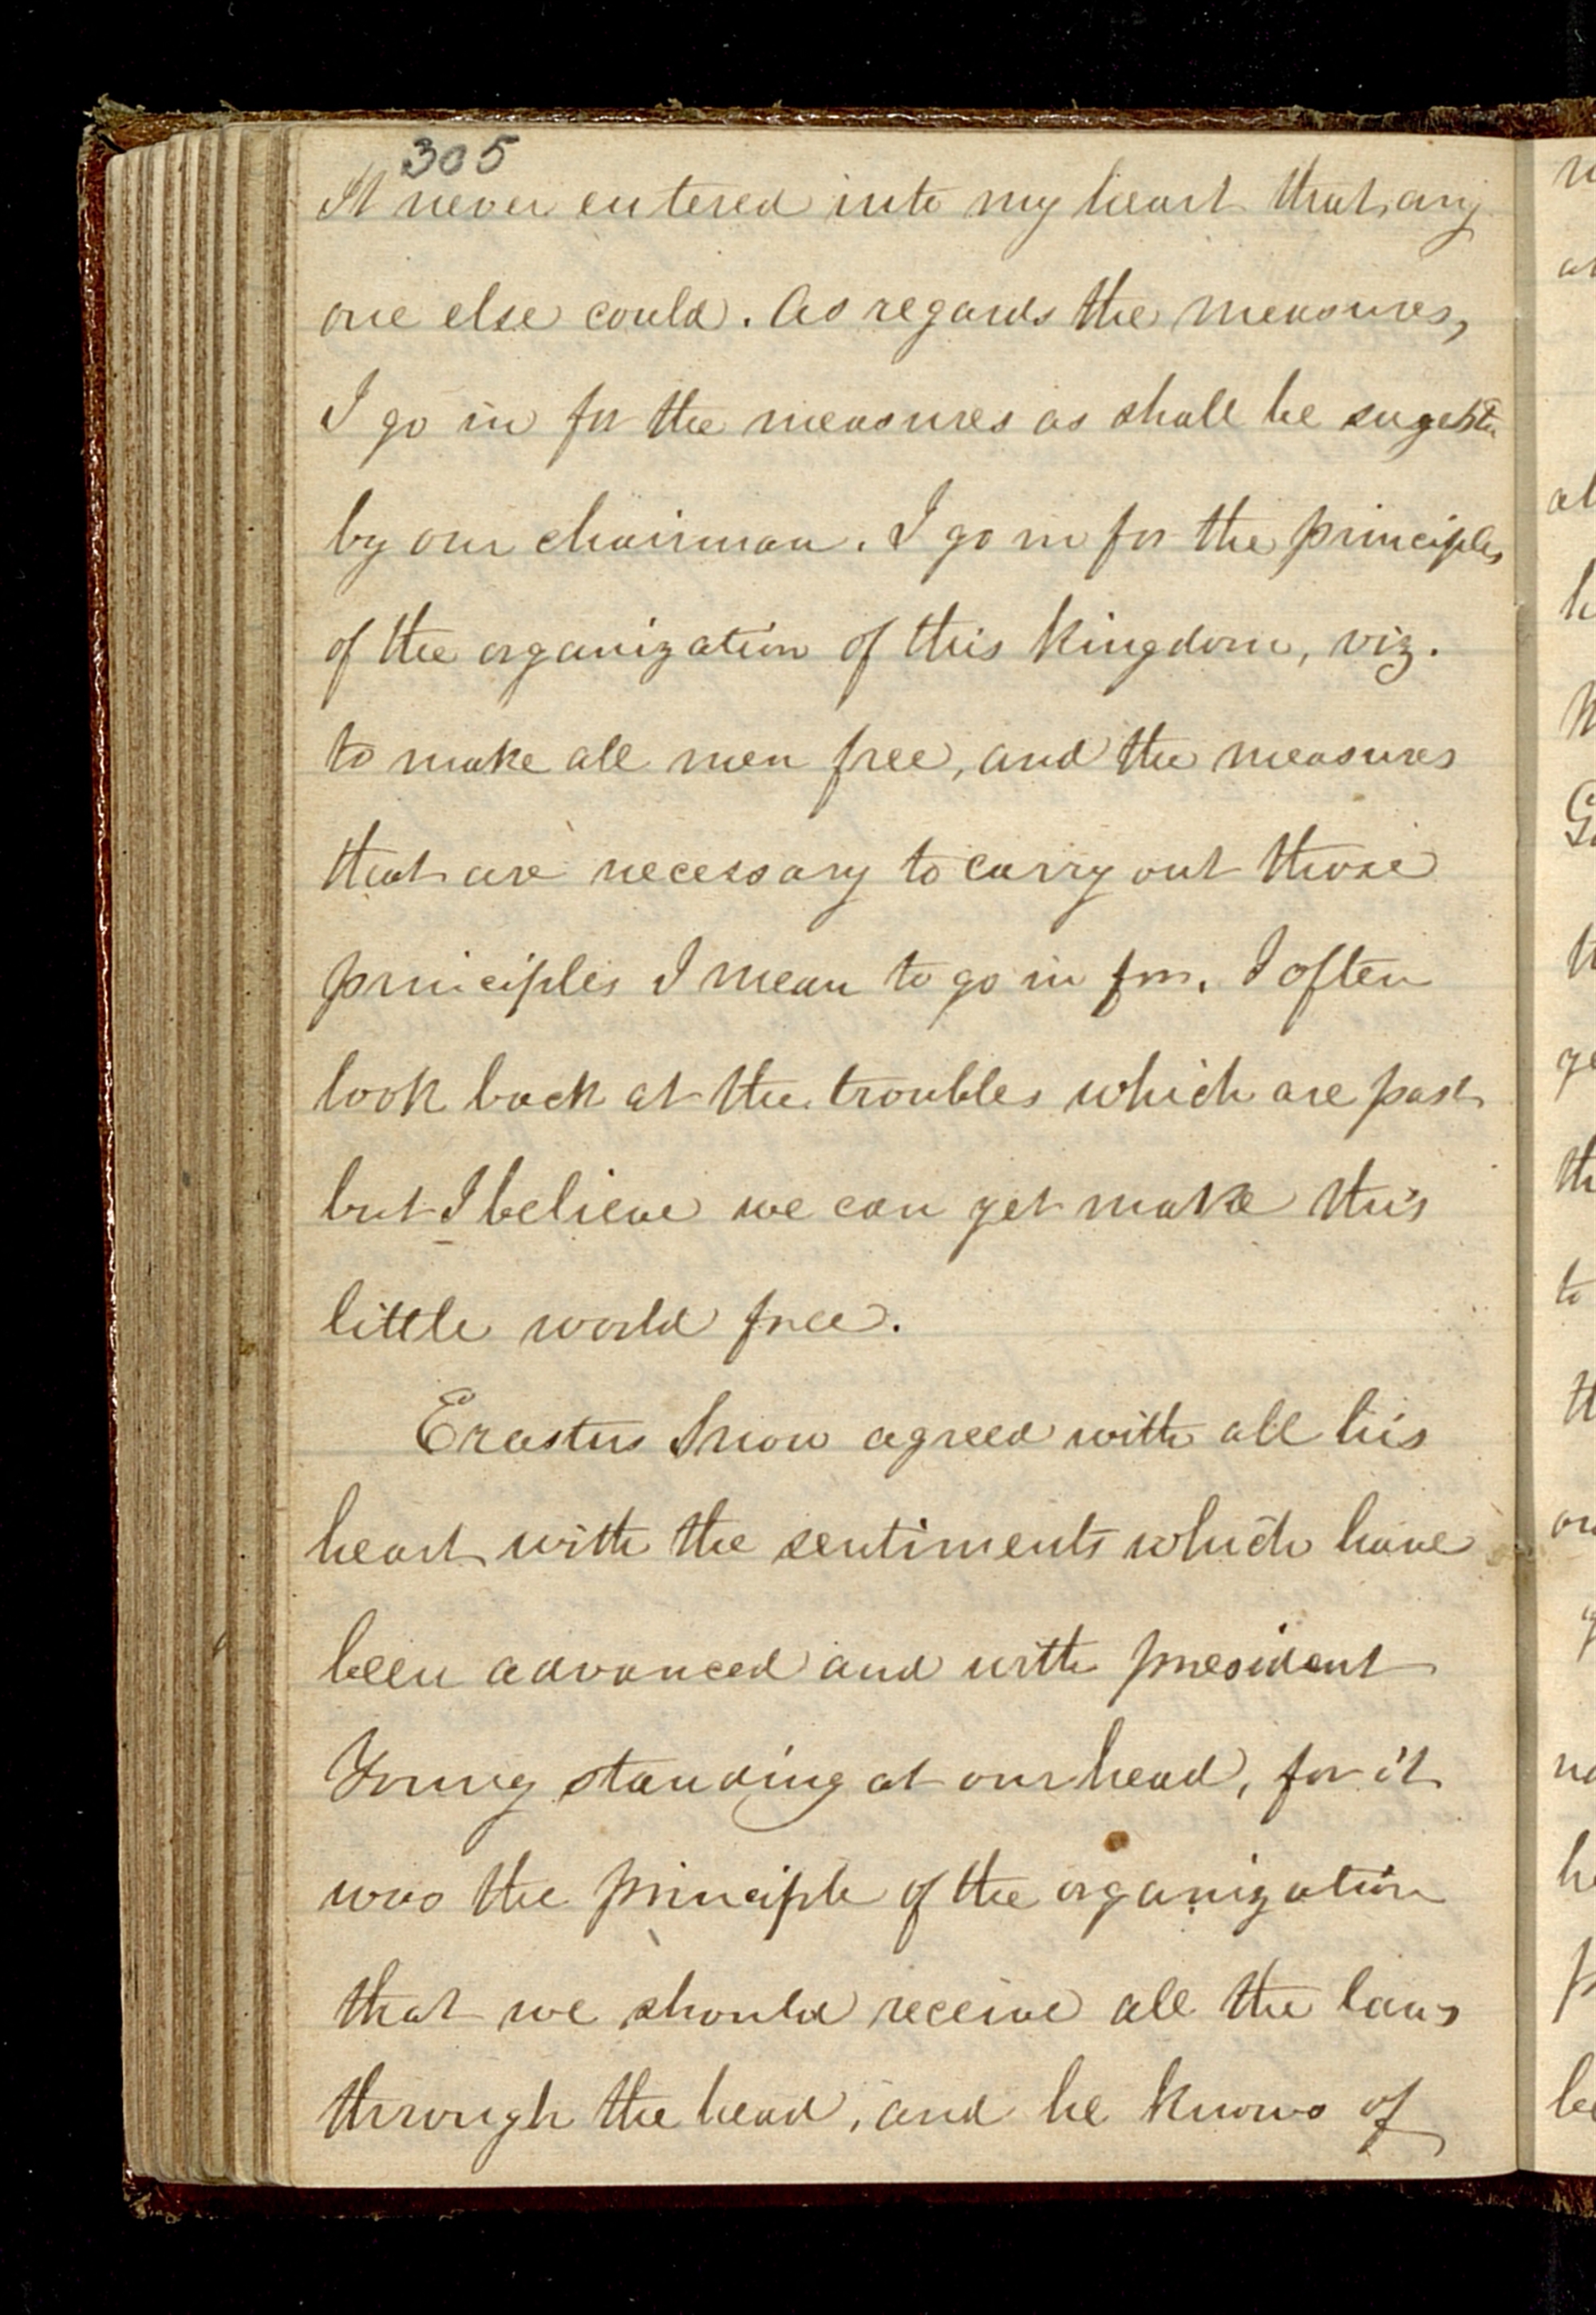 305
It never entered into my heart that any
one else could. As regards the measures,
I go in for the measures as shall be
by our chairman. I go in for the principles
of the organization of this kingdom, viz.
to make all men free, and the measures
that are necessary to carry out those
principles I mean to go in for. I often
look back at the troubles which are past
but I believe we can yet make this
little world free.
Erastus Snow agreed with all his
heart with the sentiments which have
been advanced and with president
Young standing at our head, for it
was the principle of the organization
that we should receive all the laws
through the head, and he knows of